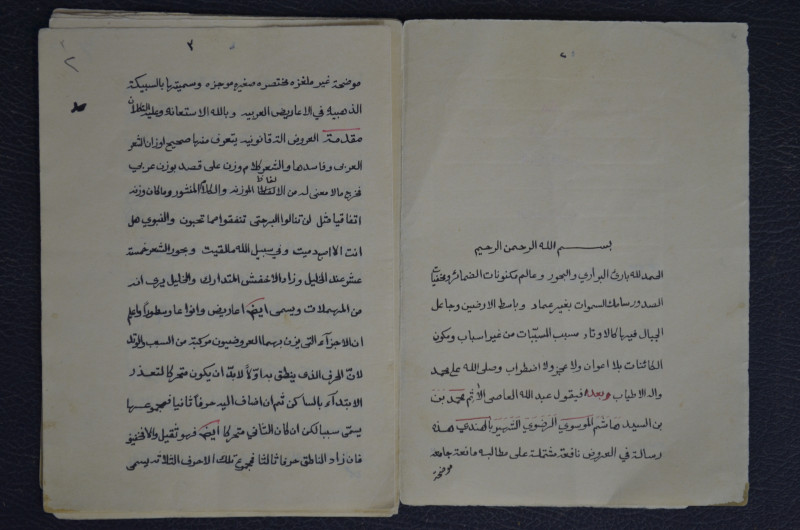 بسم الله الرحمن الرحيم
الحمد لله بارئ البراري والبحور وعالم مكنونات الضمائر وخفيات
الصدور سامك السموات بغير عماد وباسط الارضين وجاعل
الجبال فيها كالاوتاد مسبب المسببات من غير اسباب ومكون
الكائنات بلا اعوان ولا عجز ولا اضطراب وصلى الله على محمد
واله الاطياب وبعد فيقول عبد الله العاصي الآثم محمد بن
بن السيد هاشم الموسوي الرضوي الشهير بالهندي هذه
رسالة في العروض نافعة مشتملة على مطالبه مانعة جامعة
موضحة
٣
٢
موضحة غير ملغزه مختصره صغيره موجزه وسميتها بالسبيكة
الذهبية في الاعاريض العربيه وبالله الاستعانة وعليه التكلان
مقدمة العروض الة قانونيه يتعرف منها صحيح اوزان الشعر
العربي وفاسدها والشعر كلام وزن على قصد بوزن عربي
فخرج مالا معنى له من الالفاظ الموزنه والكلام المنثور وما كان وزنه
اتفاقيا مثل لن تنالوا البر حتى تنفقوا مما تحبون والنبوي هل
انت الا اصبع دميت وفي سبيل الله ما لقيت وبحور الشعر خمسة
عشر عند الخليل وزاد الاخفش المتدارك والخليل يرى انه
من المهملات ويسمى ايضا اعاريض وانواعا وسطورا واعلم
ان الاجزآء التي يزن بهما العروضيون مركبة من السبب والوتد
لان الحرف الذي ينطق به اولا لابد ان يكون متحركا لتعذر
الابتدآء بالساكن ثم ان اضاف اليه حرفا ثانيا فمجموعهما
يسمى سببا لكن ان كان الثاني متحركا ايضا فهو ثقيل والا فخفيف
فان زاد الناطق حرفا ثالثا فمجموع تلك الاحرف الثلاثه يسمى